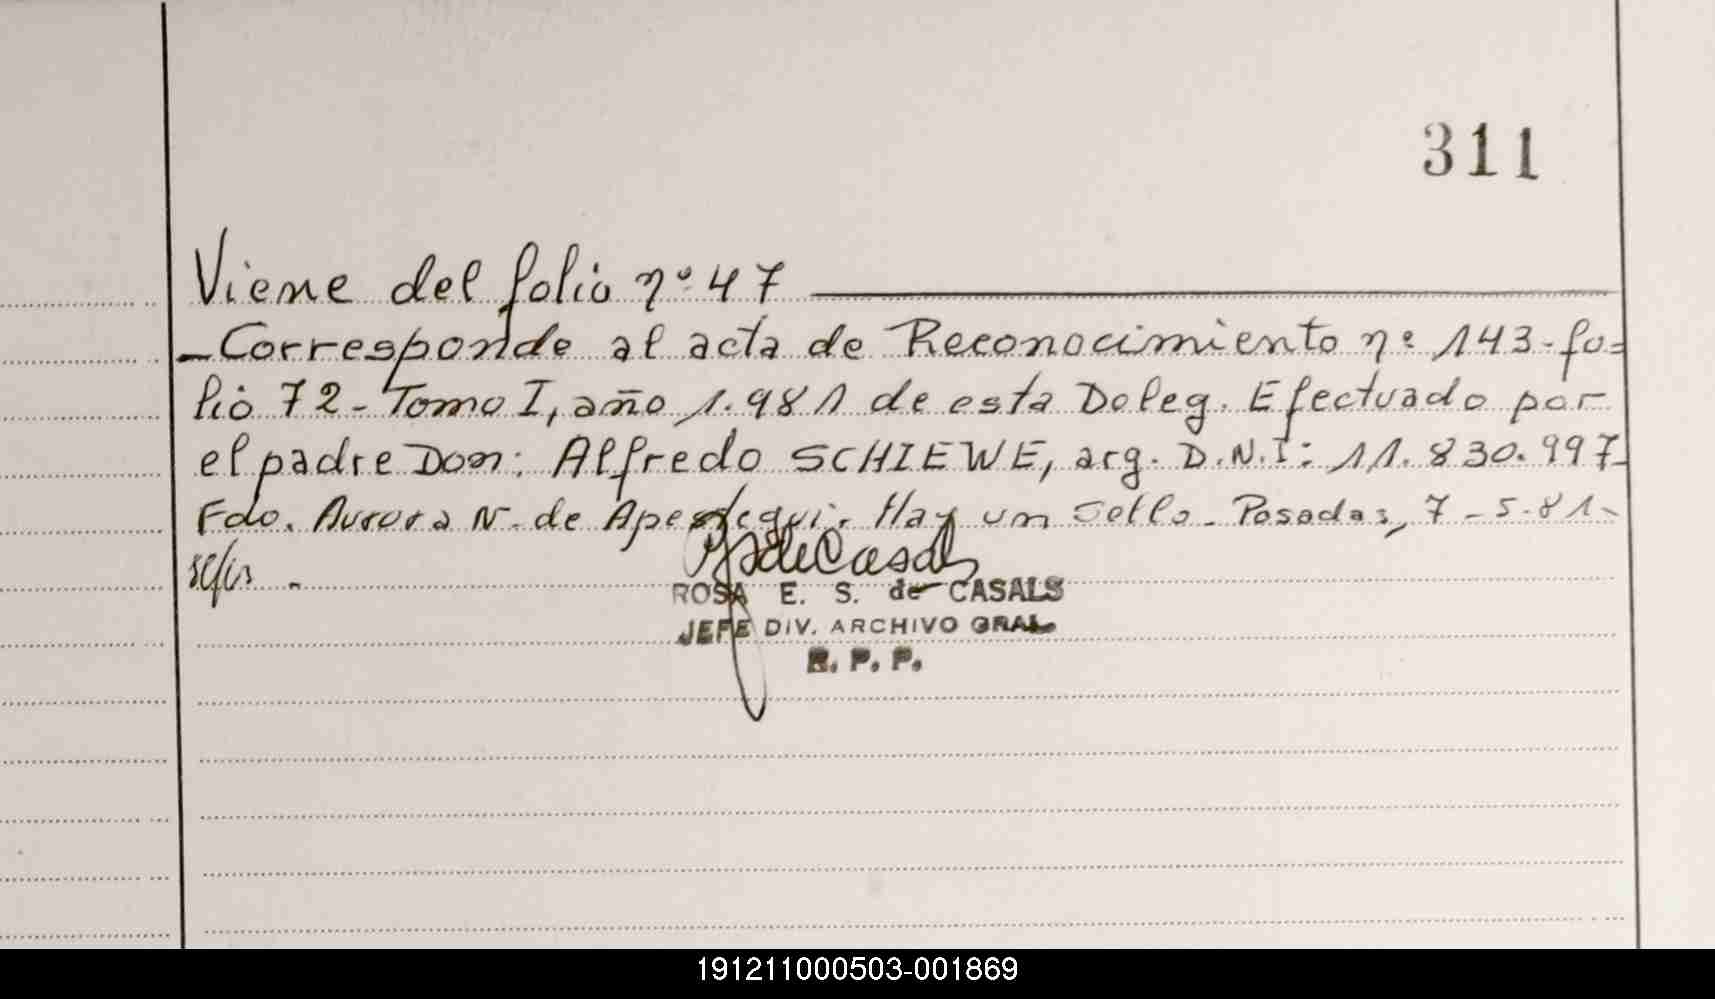 311
Viene del folio nº 47
Corresponde al acta de Reconocimiento nº 143-fo=
lio 72- Tomo I, año 1.981 de esta Deleg. Efectuado por
el padre Don: Alfredo SCHIEWE, arg. D.N.I: 11.830.997-
Fdo. Aurora N. de Apestegui. Hay un sello- Posadas, 7-5-81-
ROSA E. S. de CASALS
JEFE DIV. ARCHIVO GRAL
R. P. P.
191211000503-001869